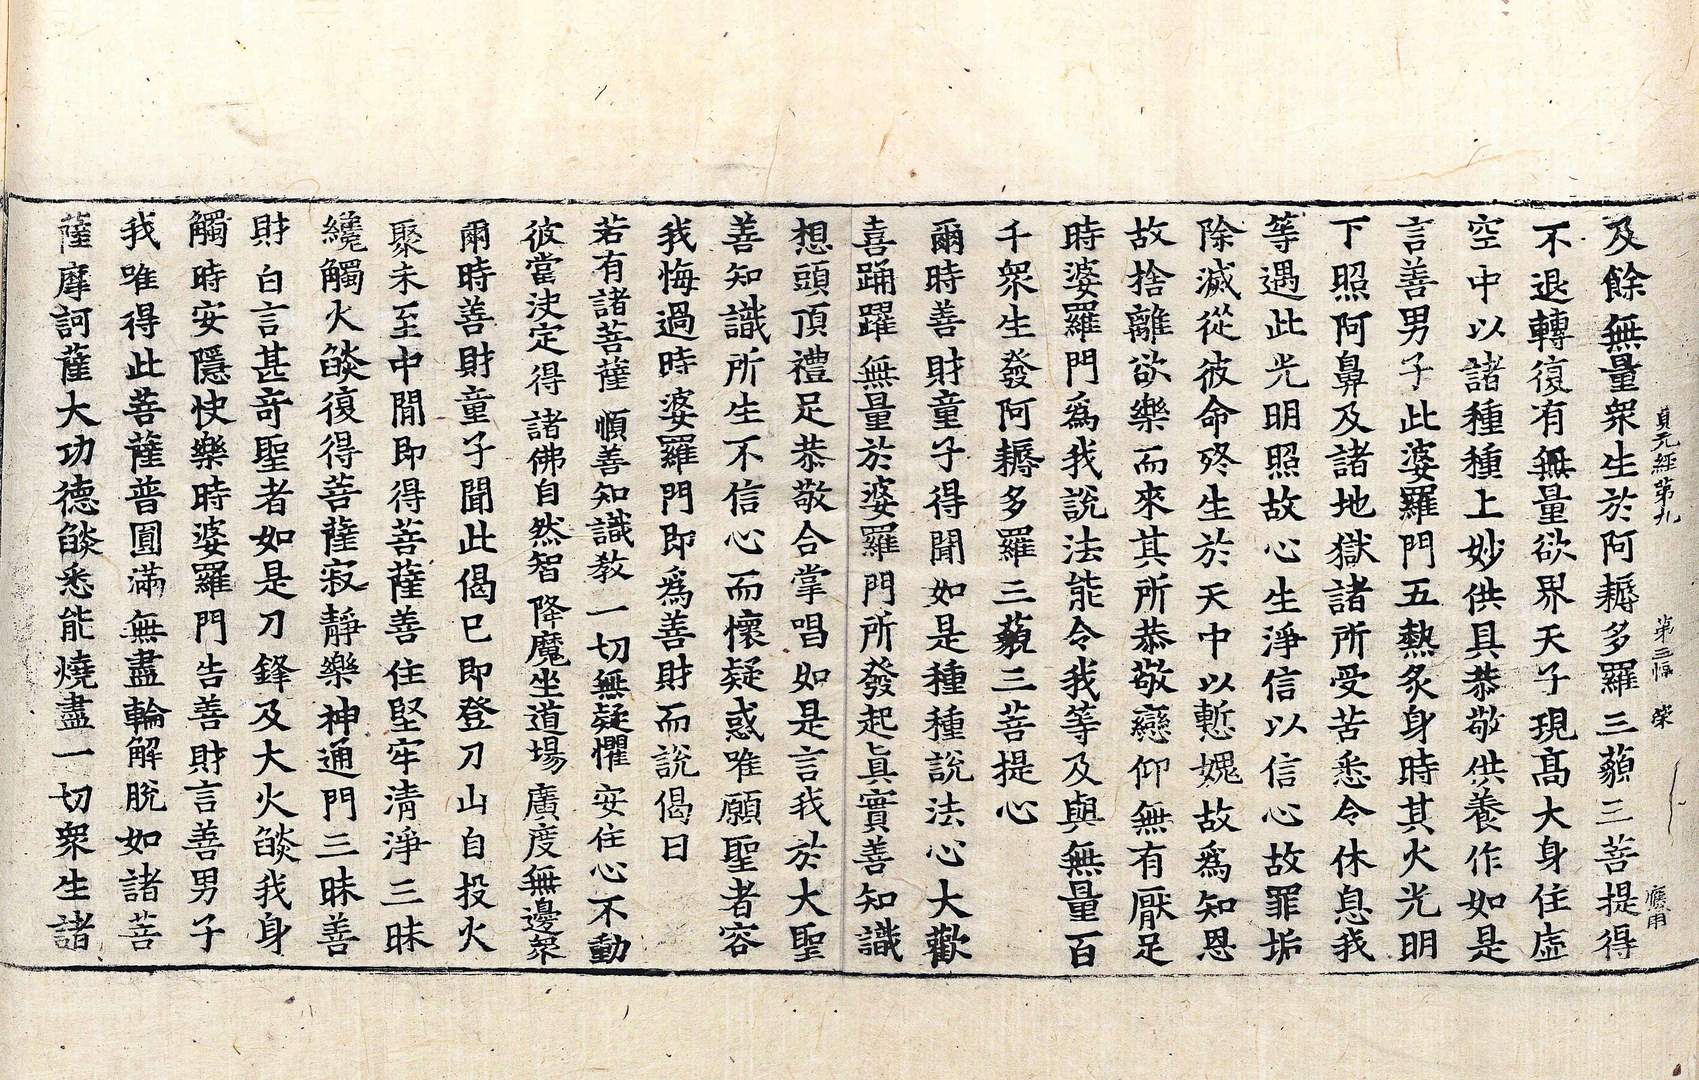 貞元經第九　第三幅　榮　應用
及餘無量衆生於阿耨多羅三藐三菩提得
不退轉復有無量欲界天子現髙大身住虛
空中以諸種種上妙供具恭敬供養作如是
言善男子此婆羅門五熱炙身時其火光明
下照阿鼻及諸地獄諸所受苦悉令休息我
等遇此光明照故心生淨信以信心故罪垢
除滅從彼命終生於天中以慙媿故爲知恩
故捨離欲樂而來其所恭敬戀仰無有厭足
時婆羅門爲我說法能令我等及與無量百
千衆生發阿耨多羅三藐三菩提心
爾時善財童子得聞如是種種說法心大歡
喜踊躍無量於婆羅門所發起眞實善知識
想頭頂禮足恭敬合掌唱如是言我於大聖
善知識所生不信心而懷疑惑唯願聖者容
我悔過時婆羅門即爲善財而說偈曰
若有諸菩薩 順善知識教 一切無疑懼 安住心不動
彼當決定得 諸佛自然智 降魔坐道場 廣度無邊衆
爾時善財童子聞此偈已即登刀山自投火
聚未至中間即得菩薩善住堅牢清淨三昧
纔觸火燄復得菩薩寂靜樂神通門三昧善
財白言甚奇聖者如是刀鋒及大火燄我身
觸時安隱快樂時婆羅門告善財言善男子
我唯得此菩薩普圓滿無盡輪解脫如諸菩
薩摩訶薩大功德燄悉能燒盡一切衆生諸